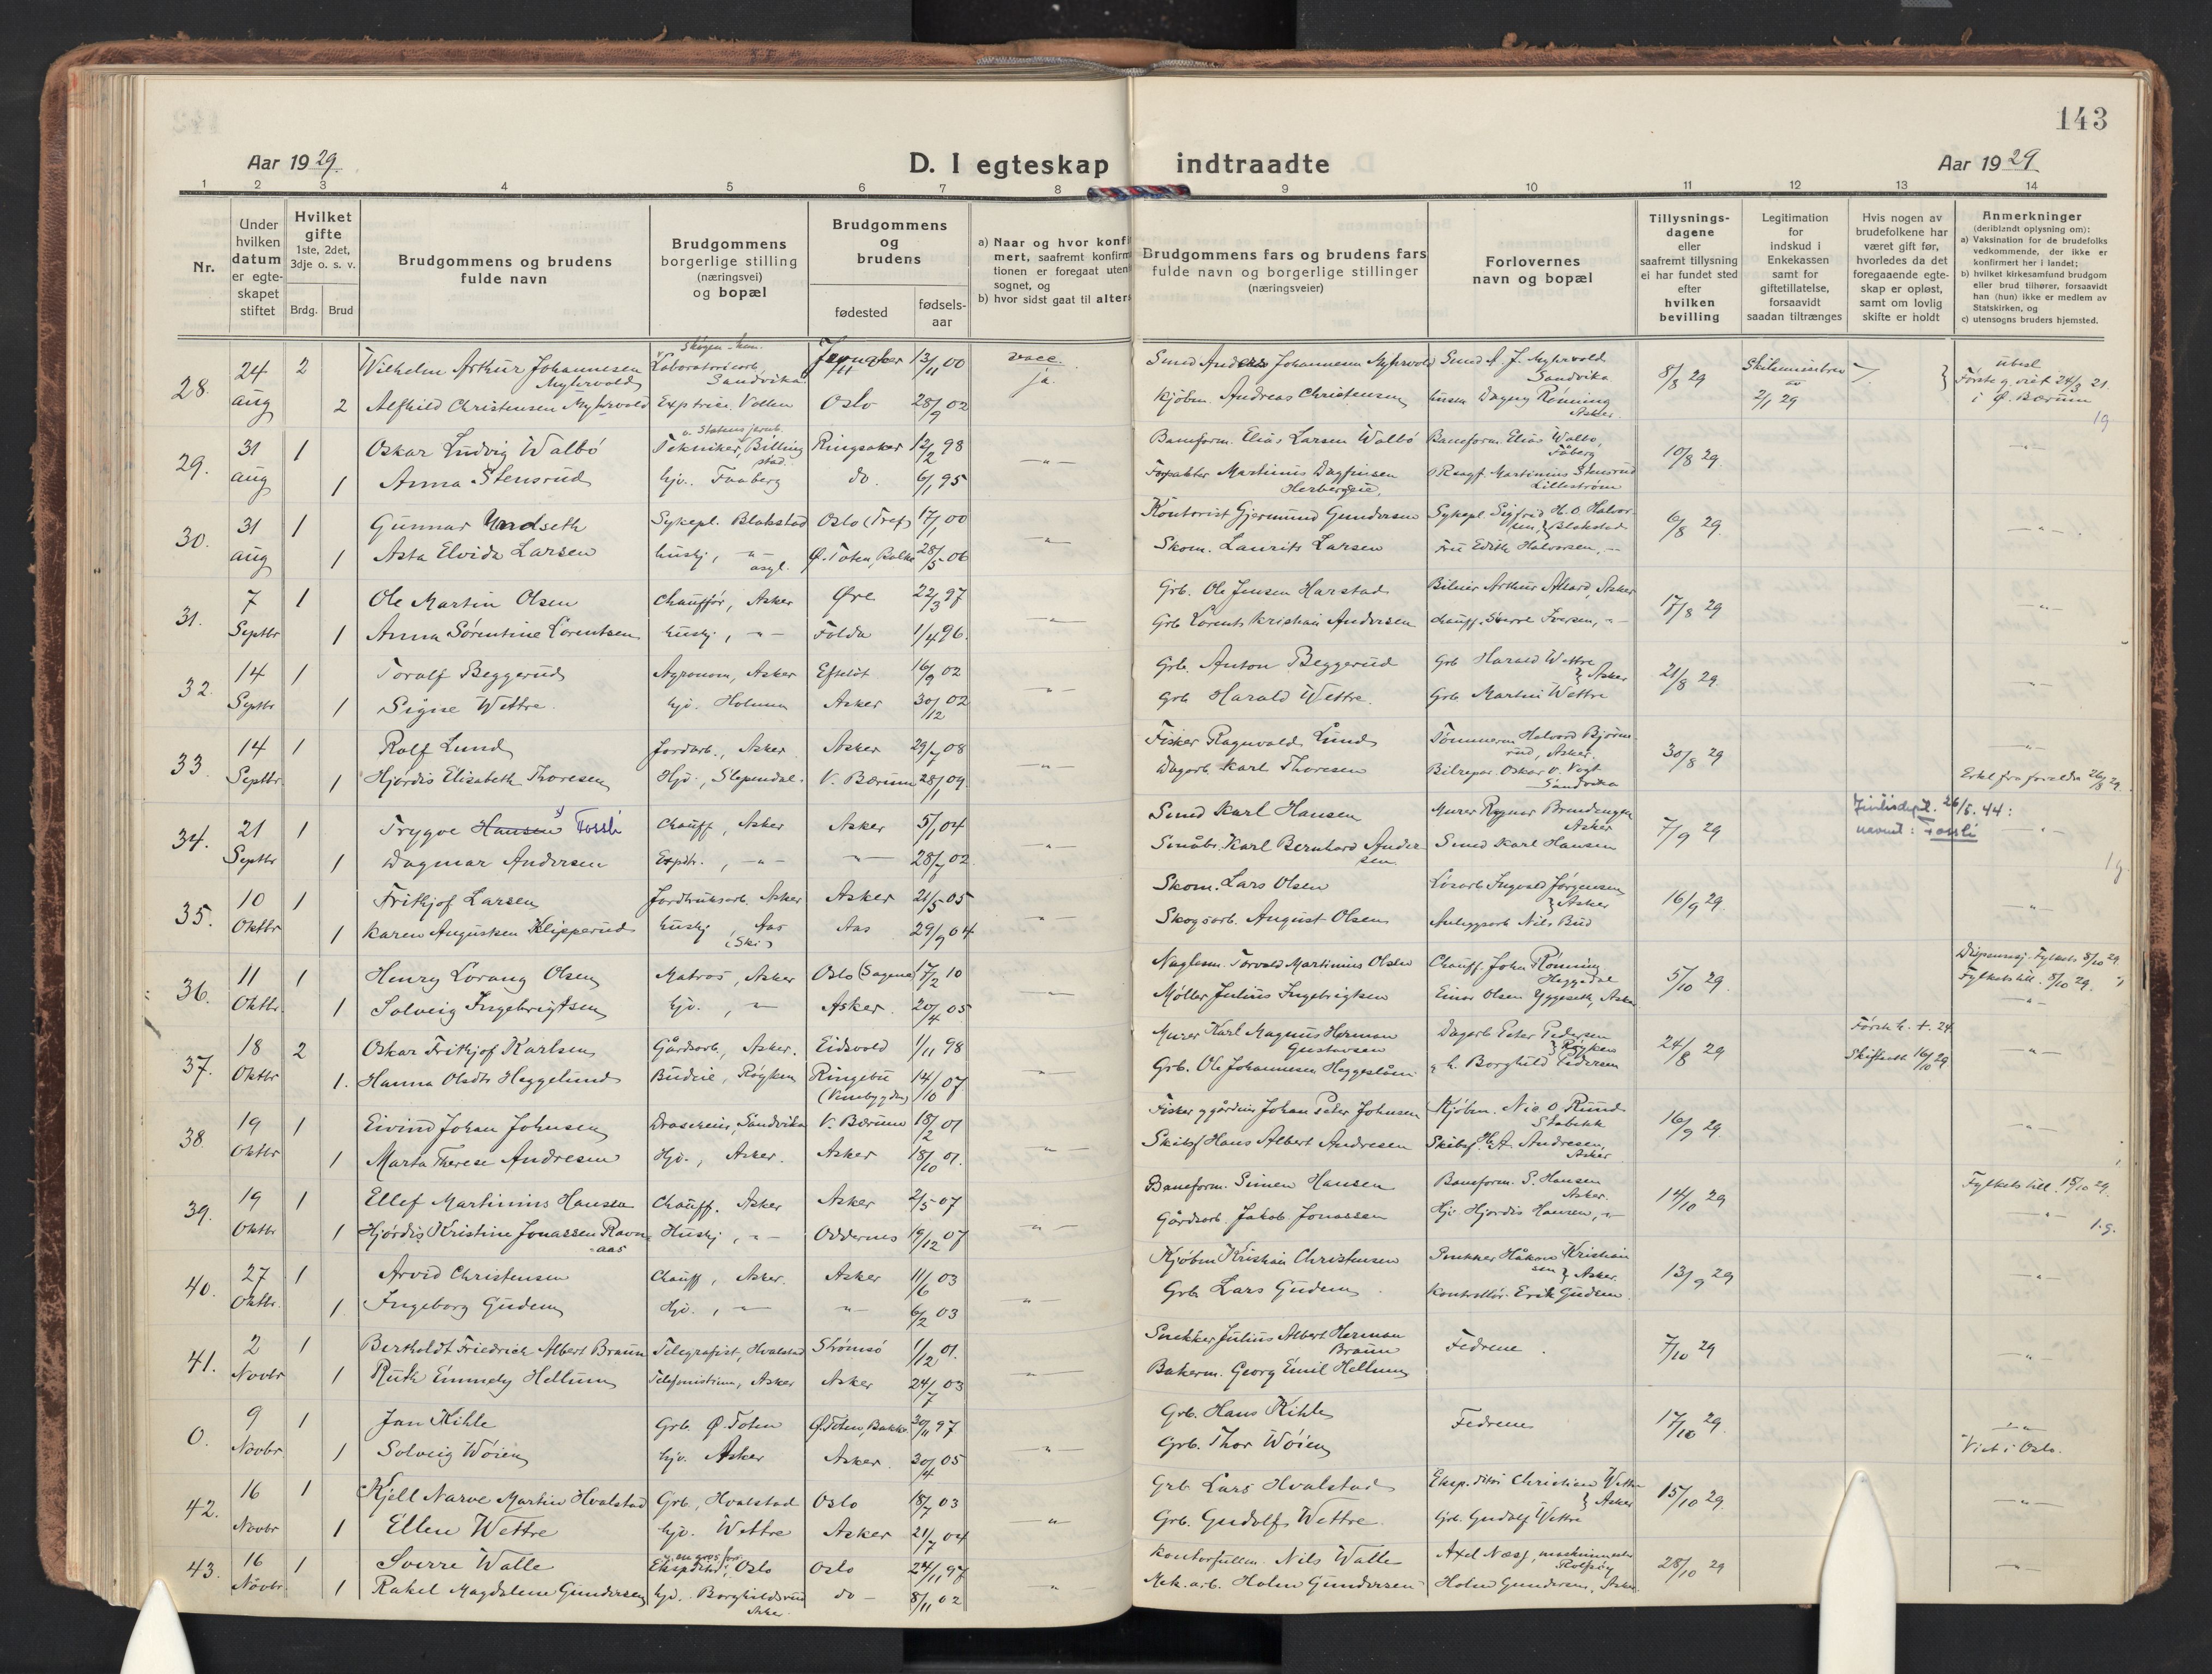 143
Aar 1929.
D. I egteskap indtraadte
Aar 1929
1 2 3 4 5 6 7 8 9 10 11 12 13 14
Nr.
Under hvilken datum er egteskapet stiftet
Hvilket gifte 1ste, 2det, 3dje o. s. v.
Brdg. Brud
Brudgommens og brudens fulde navn
Brudgommens borgerlige stilling (næringsvei) og bopæl
Brudgommens og brudens
fødested
fødsels-aar
a) Naar og hvor konfir
mert, saafremt konfirm
tionen er foregaat uten
sognet, og
b) hvor sidst gaat til alters
Brudgommens fars og brudens fars fulde navn og borgerlige stillinger (næringsveier)
Forlovernes navn og bopæl
Tillysnings-dagene eller saafremt tillysning ei har fundet sted efter hvilken bevilling
Legitimation for indskud i Enkekassen samt for giftetillatelse, forsaavidt saadan tiltrænges
Hvis nogen av brudefolkene har været gift før, hvorledes da det foregaaende egteskap er opløst, samt om lovlig skifte er holdt
Anmerkninger (deriblandt oplysning om):
a) Vaksination for de brudefolks vedkommende, der ikke er konfirmert her i landet;
b) hvilket kirkesamfund brudgom eller brud tilhører, forsaavidt han (hun) ikke er medlem av Statskirken, og
c) utensogns bruders hjemsted.
28. 24 aug 2 Wilhelm Arthur Johannesen Myhrvold Laboratoriearb, Sandvika 13/11 00 vacc. ja. Smed Anders Johannesen Myhrvold Smed A. J. Myhrvold Sandvika 8/8 29 2/1 29
2 Alfhild Christensen Myhrvold Exptrice. Vollen Oslo 28/9 02 Kjøbm. Andreas Christensen Dagny Rønning Asker. Første g. viet 24/3 21. i Ø. Bærum
1g
29. 31 aug 1 Oskar Ludvig Walbö Tekniker, Billingstad. Ringsaker 12/2 98 Baneform. Elias Larsen Walbö Baneform. Elias Walbo, Fåberg 10/8 29.
1 Anna Stensrud hjv. Faaberg do. 6/1 95 Martinus Dagfinsen Martinius Stensrud Lillestrøm
30. 31 aug 1 Gunnar Undseth Sykepl. Blakstad Oslo (Tref) 17/1 00 Kontorist Gjermund Gundersen Sykepl. Sigfrid H. O. Halvorsen, } Blakstad 6/8 29.
1 Asta Elvida Larsen hushj, -"- asyl. Ø. Toten, Balke 28/5 06 Skom. Laurits Larsen Fru Edith Halvorsen, -"-
31. 7 Septbr 1 Ole Martin Olsen Chauffør, Asker Øre 22/3 97 Grb. Ole Jensen Harstad Bileier Arthur Allard, Asker 17/8 29
1 Anna Sørentine Lorentsen hushj, -"- Folda 1/4 96. Grb Lorents Kristian Andersen Chauff. Sverre Iversen, -"-
32. 14 Septbr 1 Toralf Beggerud Agronom, Asker Efteløt 16/9 02 Grb. Anton Beggerud Grb Harald Wettre } Asker 21/8 29.
1 Signe Wettre. hjv. Holmen Asker 30/12 02 Grb Harald Wettre. Grb. Martin Wettre
33. 14 Septbr. 1 Rolf Lund Jordarb., Asker Asker 29/7 08 Fisker Ragnvald Lund Tømmerm Halvord Bjørnerud, Asker. 30/8 29
1 Hjørdis Elisabeth Thoresen Hjv., Slependen. V. Bærum 28/1 09. Dagarb. Karl Thoresen Bilrepar. Oskar V. Vogt Sandvika
34. 21 Septbr 1 Trygve Hansen Fossli Chauff, Asker Asker 5/1 04 Smed Karl Hansen Murer Ragnar Brendengen Asker 7/9 29 26/5. 44: navnet: Fossli
1 Dagmar Andersen Expdtr., -"- -"- 28/7 02. Småbr. Karl Bernhard Andersen Smed Karl Hansen
1g.
35. 10 Oktbr 1 Frithjof Larsen Jordbruksarb. Asker Asker 21/5 05 Skom. Lars Olsen Løsarb Ingvald Jørgensen } Asker 16/9 29.
1 Karen Augusten Klipperud hushj, Aas (Ski) Aas 29/9 04 Skogsarb. August Olsen Anleggsarb Nils Bud
36. 11 Oktbr. 1 Henry Lorang Olsen Matros, Asker Oslo (Sagene) 17/2 10 Naglesm. Torvald Martinius Olsen Chauff. John Rønning Heggedal 5/10 29. Fylkets till. 8/10 29.
1 Solveig Ingebrigtsen hjv., -"- Asker. 20/4 05 Møller Julius Ingebrigtsen Einar Olsen Yggeseth, Asker
37. 18 Oktbr 2 Oskar Frithjof Karlsen Gårdsarb., Asker. Eidsvold 1/11 98 Murer Karl Magnus Herman Gustavsen Dagarb Peter Pedersen } Røyken 24/8 29 Første h. + 24. Skifteatt. 16/10 29.
1. Hanna Olsdtr Heggelund Budeie, Røyken Ringebu (Venebygden) 14/10 07 Grb. Ole Johannesen Heggeslåen Borghild Pedersen
38. 19 Oktbr 1 Eivind Johan Johnsen Droscheeier, Sandvika V. Bærum 18/2 01 Fisker g gårdeier Johan Peter Johnsen Kjøbm. Nic O. Rund Stabekk 16/9 29.
1 Marta Therese Andresen Hjv., Asker. Asker 18/10 01. Skibsf Hans Albert Andresen Skibsf. H. A. Andresen, Asker
39. 19 Oktbr 1 Ellef Martinius Hansen Chauff. Asker Asker 2/5 07 Baneform. Simen Hansen Baneform. S. Hansen Asker. 14/10 29 Fylkets till. 15/10 29.
1 Hjördis Kristine Jonassen Ravnaas Hushj, -"- Oddernes 19/12 07 Gårdsarb. Jakob Jonassen Hjv. Hjordis Hansen, -"-
1.g.
40. 27 Oktbr. 1 Arvid Christensen Chauff, Asker. Asker 11/6 03 Kjøbm Kristian Christensen Snekker Håkon Kristiansen } Asker. 13/9 29
1 Ingeborg Gudem Hjv., -"- -"- 6/2 03 Grb Lars Gudem Kontrollör. Erik Gudem.
41. 2 Novbr 1 Bertholdt Friedrich Albert Braun Telegrafist, Hvalstad Strømsø 1/12 01. Snekker Julius Albert Herman Braun Fedrene. 7/10 29
1 Ruth Emmely Hellum Telefonistinne, Asker Asker 24/7 03 Bakerm. Georg Emil Hellum
0. 9 Novbr 1 Jan Kihle Grb. Ø. Toten Ø. Toten, Bakke 30/11 97 Grb. Hans Kihle Fedrene 17/10 29.
1 Solveig Wøien hjv. Asker Asker. 30/4 05 Grb. Thor Wøien Viet i Oslo.
42. 16 Novbr 1 Kjell Narve Martin Hvalstad Grb, Hvalstad Oslo 18/7 03 Grb Lars Hvalstad Eksp.ditør Christian Wettre } Asker 15/10 29.
1 Ellen Wettre hjv. Wettre Asker 21/7 04 Grb. Gudolf Wettre Grb. Gudolf Wettre
43. 16 Novbr. 1 Sverre Walle Ekspeditør, Oslo Oslo 24/11 97 Kontorfullm. Nils Walle Axel Næss, maskinmester Rolfsøy 28/10 29
1 Rakel Magdalene Gundersen hjv. Borghildsrud Asker. do - 8/11 02 Mek. arb. Holm Gundersen Holm Gundersen, Asker